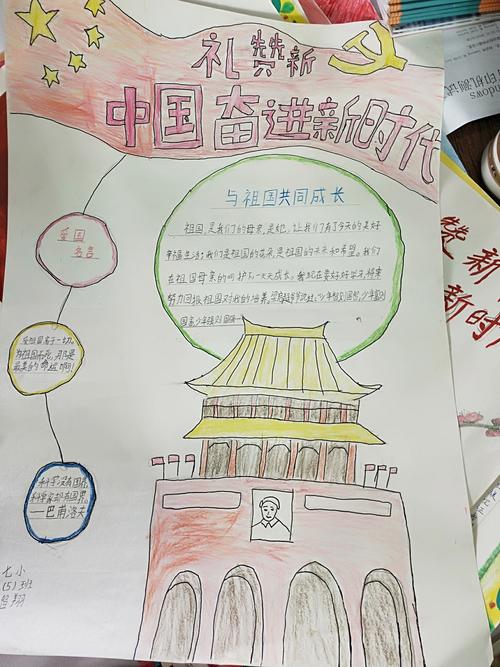 礼赞新
中国 奋进新时代
与祖国共同成长
祖国,是我们的母亲,是她,让我们有了今天的美好
幸福生活;我们是祖国的花朵,是祖国的未来和希望。我们
在祖国母亲的呵护下一天天成长。我现在要好好学习,将来
努力回报祖国对我的培养。梁启超爷爷说过:少年智则国智,少年强则
国富少年强则国强
爱国
名言
爱祖国高于一切。
科学没有国界,
科学家却有国界。
——巴甫洛夫
七小
(5)班
翔
赞新
新时